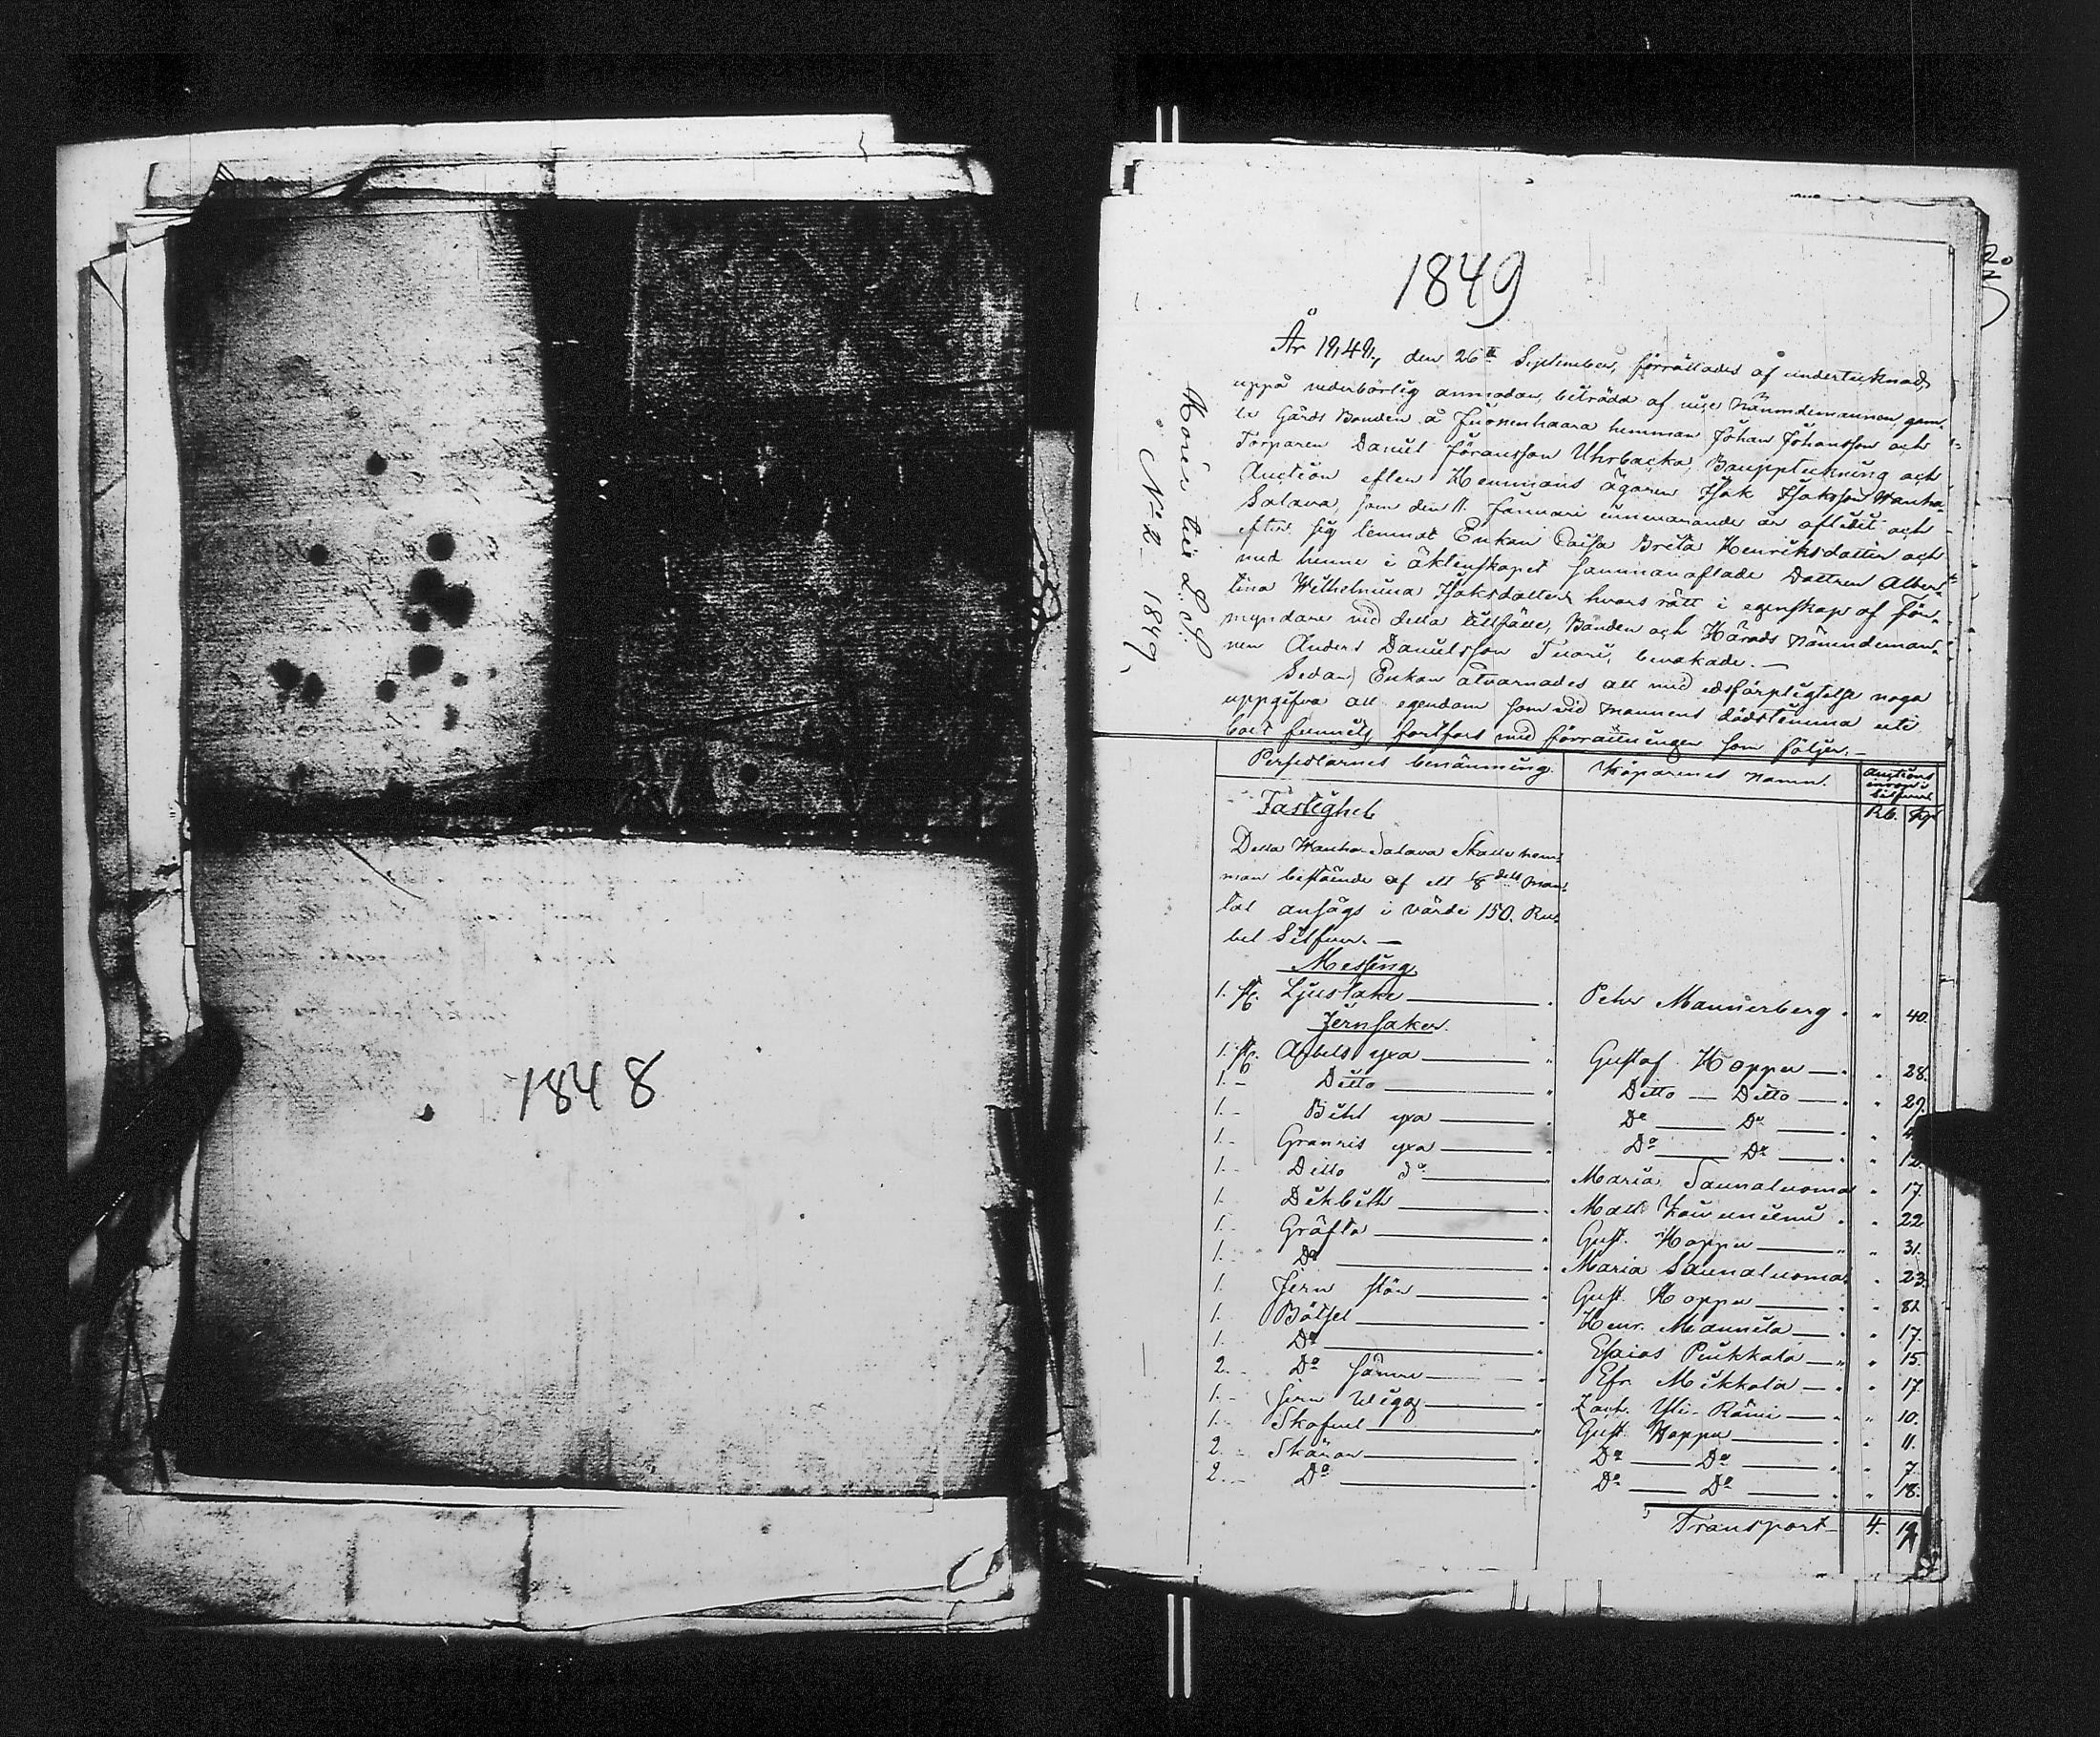 1848
1849
År 1849, den 26te September, förrättades af undertecknad
uppå vederbörlig anmodan, biträdd af Nämndemannen
Gårds Bonden å Juonenhaara hemman Johan Johansson och
Torparen Daniel Göransson Uhrbacka, Bouppteckning och
Auction efter Hemmans ägaren Isak Isaksson Wanha
Salava, som den 11. Januari innevarande år aflidit och
efter sig lemnat Enkan Caisa Brita Henriksdotter och
med henne i äktenskapet sammanaflade Dottren Alber-
tina Wilhelmina Isaksdotter hvars rätt i egenskap af För-
myndare vid detta tillfälle, Bonden och Härads Nämndeman-
nen Anders Danielsson Tuori, bevakade. —
Sedan Enkan åtvarnades att med edsförpligtelse noga
uppgifva all egendom som vid mannens dödstimma uti
boet funnits, fortfors med förrättningen som följer. —
N: 2 1849.
Persedlarnes benämning. Köparenes namn. Auctions
Silfver
Rb. Kp
Fastighet
Detta Wanha-Salava Skatte hem-
man bestående af ett 1/8 dels man-
tal ansågs i värde 150. Ru-
bel Silfver. —
Messing
1. st. Ljusstake Petter Mannerberg " 40.
Jernsaker.
1. st. Arbets yxa Gustaf Hoppu " 28.
1. – Ditto Ditto — Ditto " 29.
1. – Bihl yxa Do Do "
1. – Do Do " 12.
1. – Ditto do Maria Saunaluoma " 17.
1. Matts " 22
1. – Gräfta Gust. Hoppu " 31.
1. – Do Maria Saunaluoma " 23.
1. Jern stör Gust. Hoppu " 81.
1. Bötsel Henr. Mannila " 17.
1. Do Esaias Penkkala " 15.
2. – Do sämre Efr. Mikkola " 17.
1. – Jern Zach. Yli-Rämi " 10.
1. – Gust. Hoppu " 11.
2. – Skäror Do Do " 7.
2. – Do Do Do " 18.
Transport 4. 19